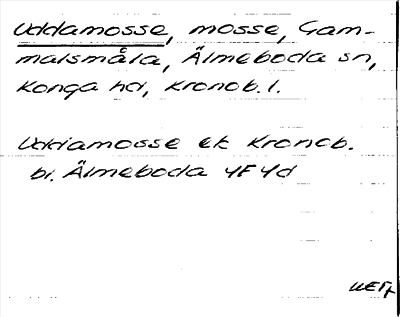 Uddamosse, mosse, Gam-
malsmåla, Älmeboda sn,
Konga hd, Kronob. l.
Uddamosse ek Kronob.
bl. Älmeboda 4F4d